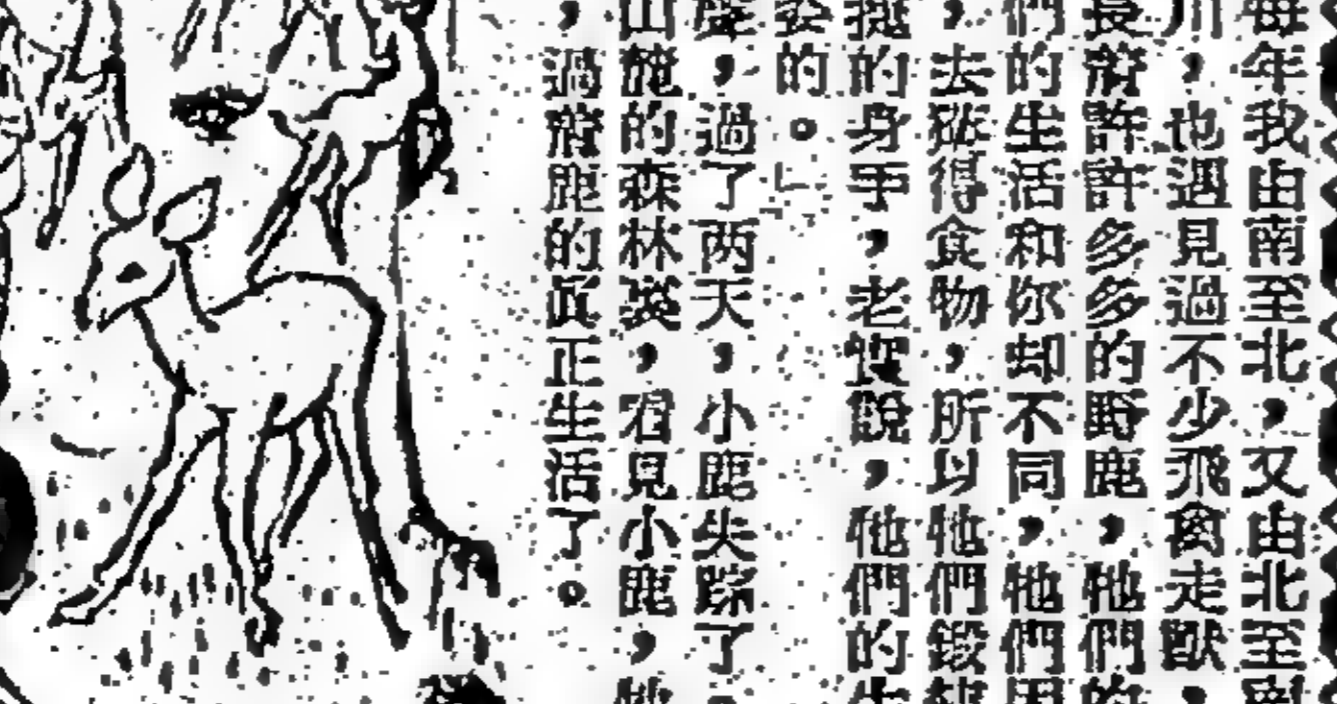 每年我由南至北，又由北至南
川，也遇見過不少飛禽走獸，
長着許許多多的野鹿，牠們的
們的生活和你却不同，牠們因
，去獲得食物，所以牠們鍛鍊
挺的身手，老實說，牠們的生
的。」
，過了两天，小鹿失踪了。
山脆的森林裏，看見小鹿，牠
，過着鹿的真正生活了。